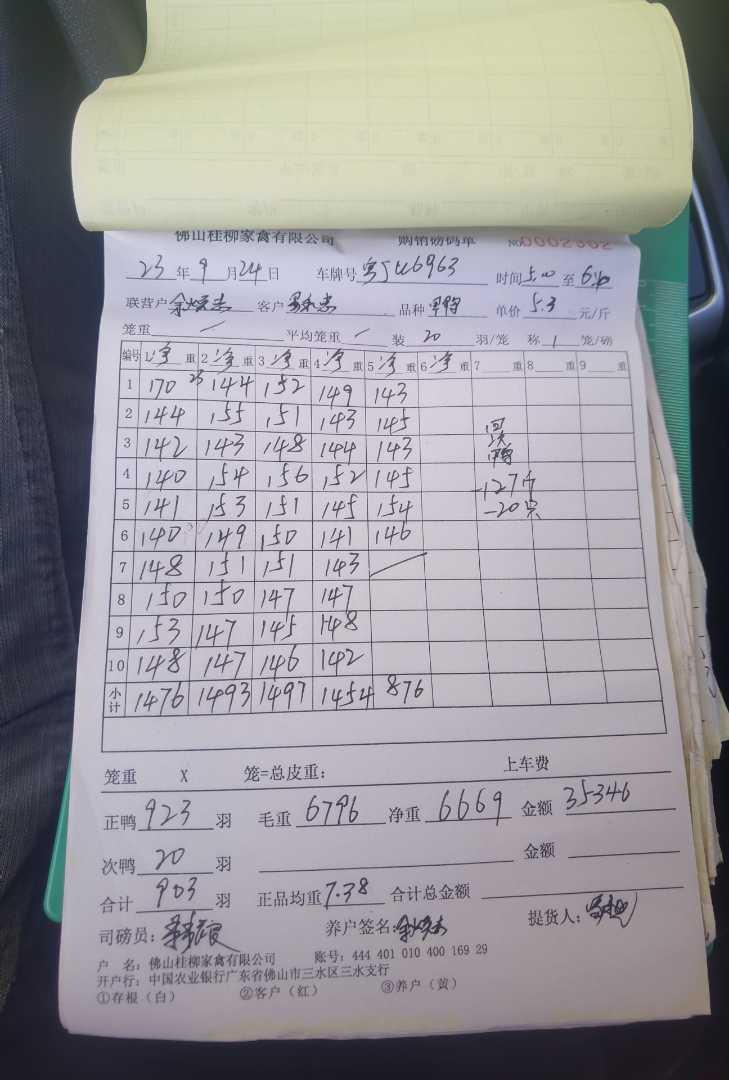 佛山桂柳家禽有限公司 购销磅码单 NO 0002302
23 年 9 月 24 日 车牌号 粤J 6963 时间 5:00 至
联营户 客户 品种 单价 5.3 元/斤
笼重 / 平均笼重 / 装 20 羽/笼 称 1 笼/磅
编号 1 净 重 2 净 重 3 净 重 4 净 重 5 净 重 6 净 重 7 重 8 重 9 重
1 170 23 144 152 149 143
2 144 155 151 143 145 回
3 142 143 148 144 143
4 140 154 156 152 145 -127斤
5 141 153 151 145 154 -20只
6 140 149 150 141 146
7 148 151 151 143 /
8 150 150 147 147
9 153 147 145 148
10 148 147 146 142
小计 1476 1493 1497 1454 876
笼重 X 笼=总皮重: 上车费
正鸭 923 羽 毛重 6796 净重 6669 金额 35346
次鸭 20 羽 金额
合计 903 羽 正品均重 7.38 合计总金额
司磅员: 养户签名: 提货人:
户 名: 佛山桂柳家禽有限公司 账号: 444 401 010 400 169 29
开户行: 中国农业银行广东省佛山市三水区三水支行
①存根（白） ②客户（红） ③养户（黄）